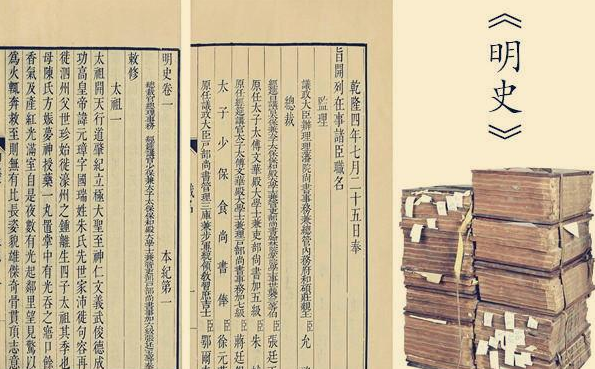 《明史》
乾隆四年七月二十五日奉
旨開列在事諸臣職名
監理
議政大臣辦理理藩院尚書事務兼總管內務府和碩莊親王臣允
總裁
經筵講官太保兼太子太保保和殿大學士兼管吏部尚書事臣張廷
原任太子太傅文華殿大學士兼吏部尚書加五級臣朱
原任經筵講官太子太傅文華殿大學士兼理戶部尚書事加七級臣蔣廷
太子少保食尚書俸臣徐元
原任議政大臣戶部尚書管理三庫兼步軍統領教習庶吉士臣鄂爾
明史卷一 本紀第一
總裁官總理事務經筵講官少保兼太子太保保和殿大學士兼管吏部戶部尚書事加六級張廷玉等奉
敕修
太祖一
太祖開天行道肇紀立極大聖至神仁文義武俊德成
功高皇帝諱元璋字國瑞姓朱氏先世家沛徙句容再
徙泗州父世珍始徙濠州之鍾離生四子太祖其季也
母陳氏方娠夢神授藥一丸置掌中有光吞之寤口餘
香氣及產紅光滿室自是夜數有光起鄰里望見驚以
爲火輒奔救至則無有比長姿貌雄傑奇骨貫頂志意